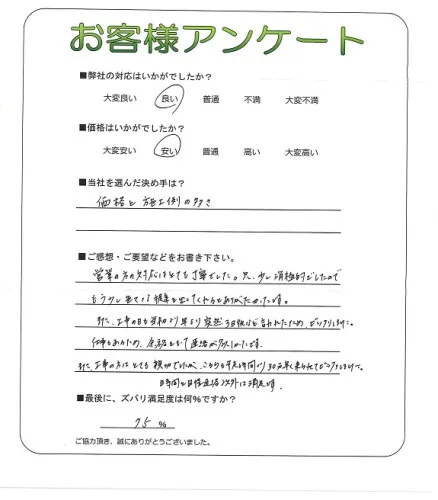 お客様アンケート
■弊社の対応はいかがでしたか?
大変良い 良い 普通 不満 大変不満
■価格はいかがでしたか?
大変安い 安い 普通 高い 大変高い
■当社を選んだ決め手は?
価格と施工例の多さ
■ご感想・ご要望などをお書き下さい。
営業の方の対応はとても丁寧でした。只、少し消極的でしたので
もう少し 提案を出してくれるとありがたかったです。
また、工事の日も 突然3日後と言われたため、ビックリしました。
仕事もあるため、余裕をもって連絡が欲しかったです。
また、工事の方はとても親切でしたが、こちらも予定時間より30分早く来られて
日時間と日程連絡以外は満足です。
■最後に、ズバリ満足度は何%ですか?
75 %
ご協力頂き、誠にありがとうございました。